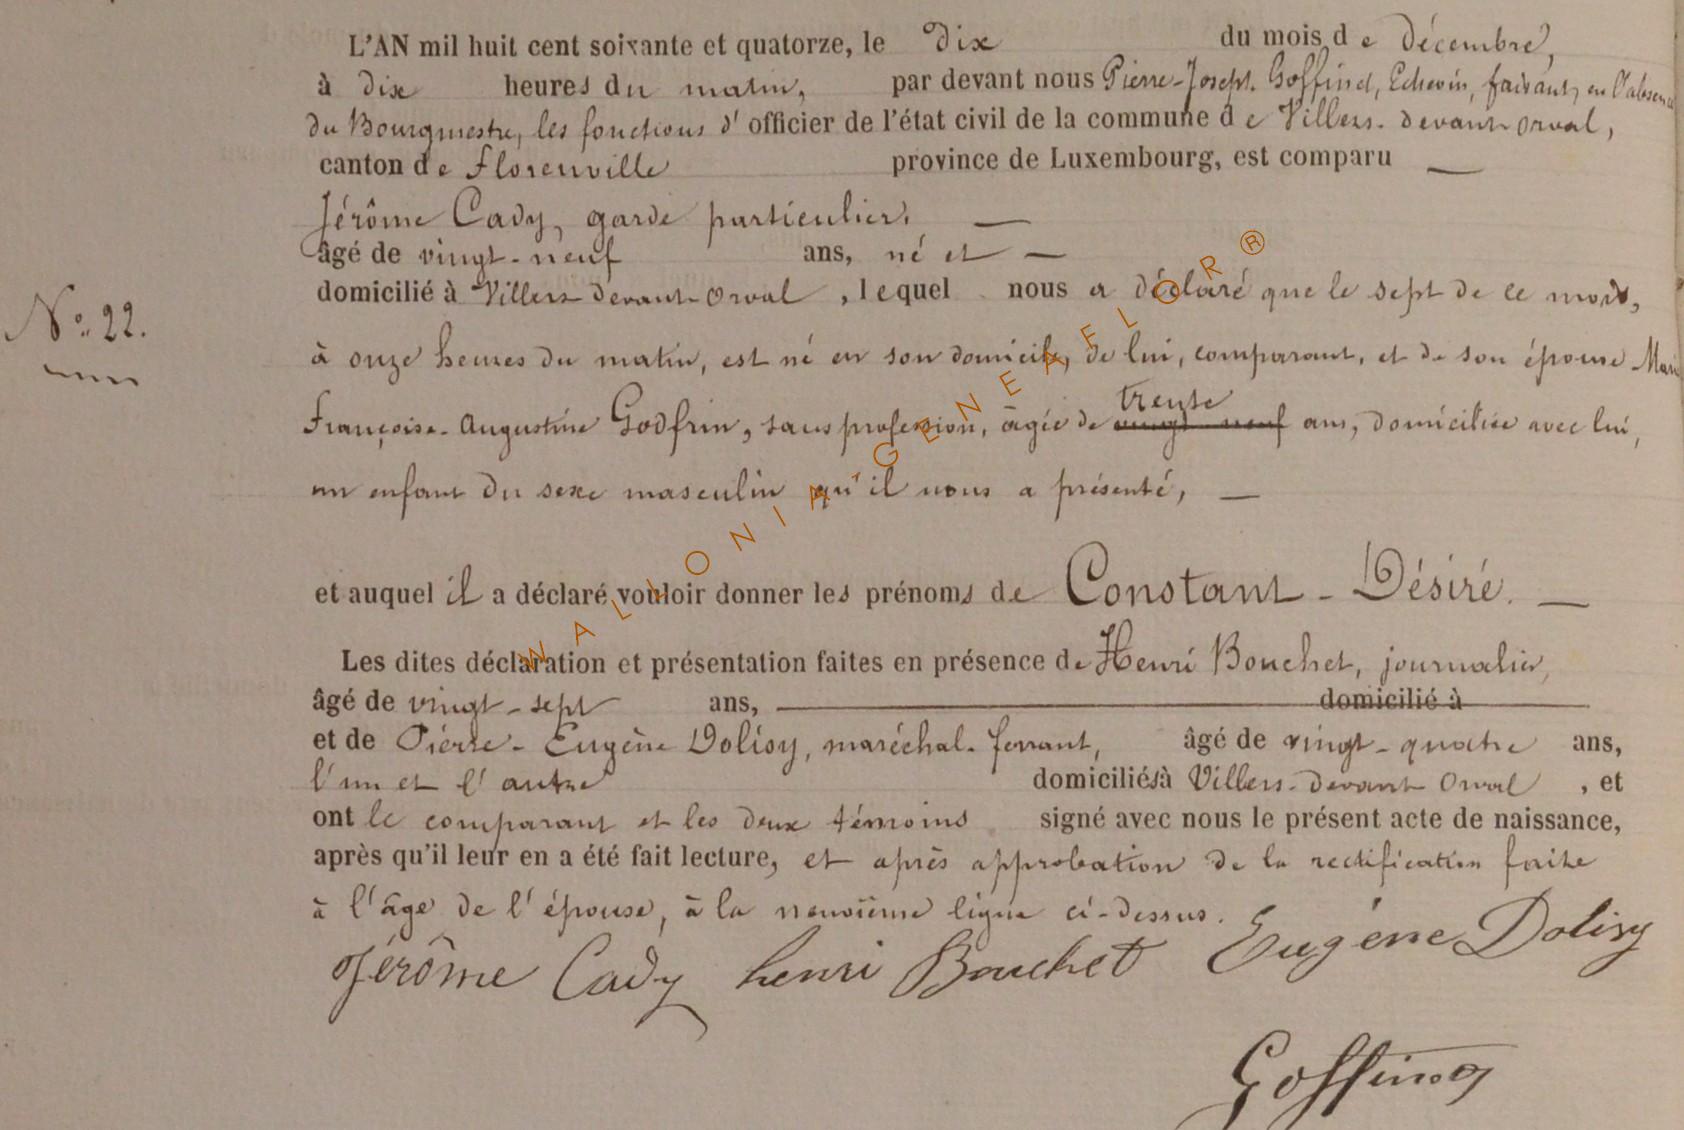 L'AN mil huit cent soixante et quatorze, le dix du mois de décembre,
à dix heures du matin, par devant nous Pierre-Joseph Goffinet, Echevin, faisant, en l'absence
du Bourgmestre, les fonctions d'officier de l'état civil de la commune de Villers-devant-Orval,
canton de Florenville province de Luxembourg, est comparu —
Jérôme Cady, garde particulier. —
âgé de vingt-neuf ans, né et —
domicilié à Villers-devant-Orval, lequel nous a déclaré que le sept de ce mois,
N° 22.
à onze heures du matin, est né en son domicile, de lui, comparant, et de son épouse Marie
treute
Françoise-Augustine Godfrin, sans profession, âgée de vingt-neuf ans, domiciliée avec lui,
un enfant du sexe masculin qu'il nous a présenté, —
et auquel il a déclaré vouloir donner les prénoms de Constant-Désiré. —
Les dites déclaration et présentation faites en présence de Henri Bouchet, journalier,
âgé de vingt-sept ans, — domicilié à
et de Pierre-Eugène Dolisy, maréchal-ferrant, âgé de vingt-quatre ans,
l'un et l'autre domiciliés à Villers-devant-Orval, et
ont le comparant et les deux témoins signé avec nous le présent acte de naissance,
après qu'il leur en a été fait lecture, et après approbation de la rectification faite
à l'âge de l'épouse, à la neuvième ligne ci-dessus.
Jérôme Cady henri Bouchet Eugène Dolisy
WALLONIA-GENEAFLOR®